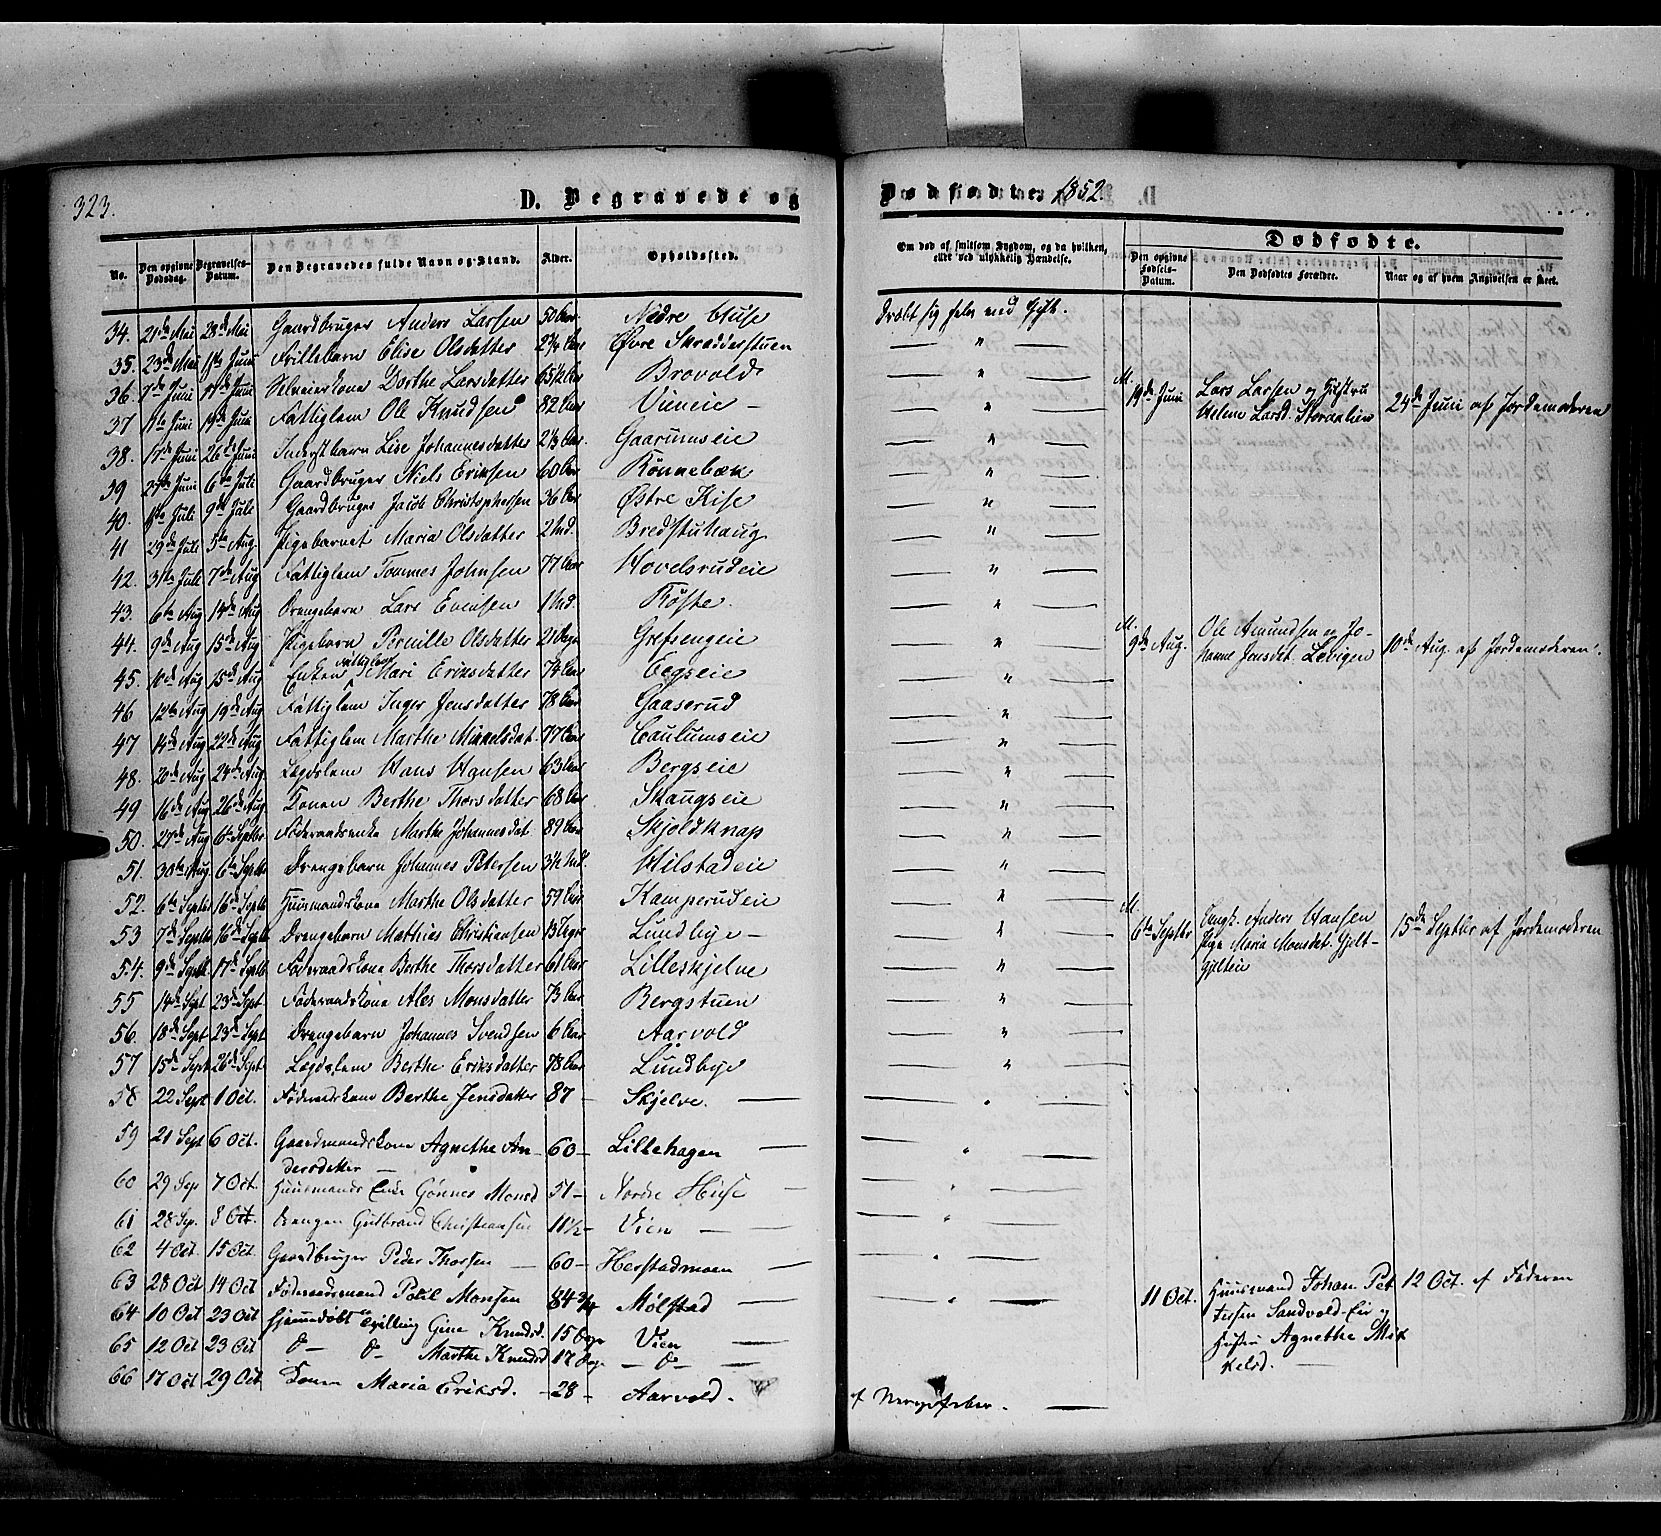 323.
D. Begravede og
Dødfødte. 1852.
No.
Den opgivne Dødsdag.
Begravelses-Datum.
Den Begravedes fulde Navn og Stand.
Alder.
Opholdssted.
Om død af smitsom Sygdom, og da hvilken, eller ved ulykkelig Hændelse.
Dødfødte.
Den opgivne Fødsels-Datum.
Den Dødfødtes Forældre.
Naar og af hvem Angivelsen er skeet.
34. 21de Mai 28de Mai Gaardbruger Anders Larsen 50 Aar Nedre Huse
35. 23de Mai 1ste Juni Frillebarn Elise Olsdatter 2¼ Aar Øvre Skrædderstuen "
36. 7de Juni 17de Juni Selveierkone Dorthe Larsdatter 65½ Aar Brovold "
37 11te Juni 19de Juni Fattiglem Ole Knudsen 82 Aar Vieneie "
38. 17de Juni 26de Juni Inderstbarn Lise Johannesdatter 2⅓ Aar. Gaarumseie "
39 27de Juni 6te Juli Gaardbruger Niels Eriksen 60 Aar Rønnebæk "
40. 1ste Juli 9de Juli Gaardbruger Jacob Christophersen 36 Aar Østre Kise "
41 29de Juli 5te Aug. Pigebarnet Maria Olsdatter 2 Md. Bredstuhaug "
42. 31te Juli 7de Aug Fattiglem Tommes Johnsen 77 Aar Hovelsrudeie "
43. 6te Aug 14de Aug Drengebarn Lars Evensen 1 Md. Røste. "
44. 9de Aug 15de Aug Pigebarn Pernille Olsdatter 21 Dage Grefsengeie "
45. 10de Aug 15de Aug Enken Fattiglem Mari Eriksdatter 74 Aar Eegseie "
46 12te Aug 19de Aug Fattiglem Inger Jensdatter 78 Aar Gaaserud "
47 14de Aug 22de Aug Fattiglem Marthe Mikkelsdat. 77 Aar Caulumseie "
48. 20de Aug 24de Aug Lægdslem Hans Hansen 63 Aar Bergseie "
49 16de Aug 26de Aug Konen Berthe Thorsdatter 68 Aar Skaugseie "
50. 27de Aug 6te Septbr Føderaadsenke Marthe Johannesdat 89 Aar Skjoldknap "
51. 30te Aug 6te Septb Drengebarn Johannes Petersen 3½ Md. Hilstadeie "
52. 6te Septbr 16de Septb Huusmandskone Marthe Olsdatter 59 Aar Kamperudeie "
53 7de Septb 16de Septb Drengebarn Mathies Christiansen 13 Dage Lundbye "
54. 9de Septb 17de Septb Føderaadskone Berthe Thorsdatter 61 Aar Lilleskjelve "
55 14de Sept 23de Sept Føderaadskone Ales Monsdatter 73 Aar Bergstuen "
56. 18de Sept 23de Sept Drengebarn Johannes Svendsen 6 Aar Aarvold "
57 15de Sept 26de Sept Lægdslem Berthe Eriksdatter 78 Aar Lundbye "
58 22 Sept 1 Oct. Føderaadskone Berthe Jensdatter 87 – Skjelve. "
59 21 Sept 6 Oct. Gaardmandskone Agnethe An-
dersdatter 60 – Lillehagen "
60 29 Sep 7 Oct. Huusmands Enke Gønner Monsd 51 – Nordre Huse "
61 28 Sep. 8 Oct. Drengen Gulbrand Christiansen 11½ – Vien "
62 4 Oct. 15 Oct. Gaardbruger Peder Thorsen 60 – Herstadmoen "
63 28 Oct 14 Oct Føderaadsmand Poul Monsen 84 ¾ Mølstad "
64 10 Oct 23 Oct Hjemmedøbt Tvilling Gine Knudsd. 15 Dage Vien
65 12 Oct 23 Oct D– D– Marthe Knudsd 17 Dage – D –
66 17 Oct 29 Oct Konen Maria Eriksd. – 28 – Aarvold.
Dræbt sig selv med Gift.
af Nervefeber.
M. 19de Juni Lars Larsen og Hustru
Helene Larsd. Storaalien 24de Juni af Jordemoderen
M. 9de Aug. Ole Amundsen og Jo-
hanne Jensdat. Løvigen 10de Aug. af Jordemoderen.
M. 6te Septbr Ungk. Anders Hansen
Pige Maria Monsdet. Gjelt-
Gjelteie 15de Septbr af Jordemoderen
11 Oct. Huusmand Johan Pet-
tersen Sandvold-Eie og
Hustru Agnethe Mik-
kelsd. 12 Oct. af Faderen